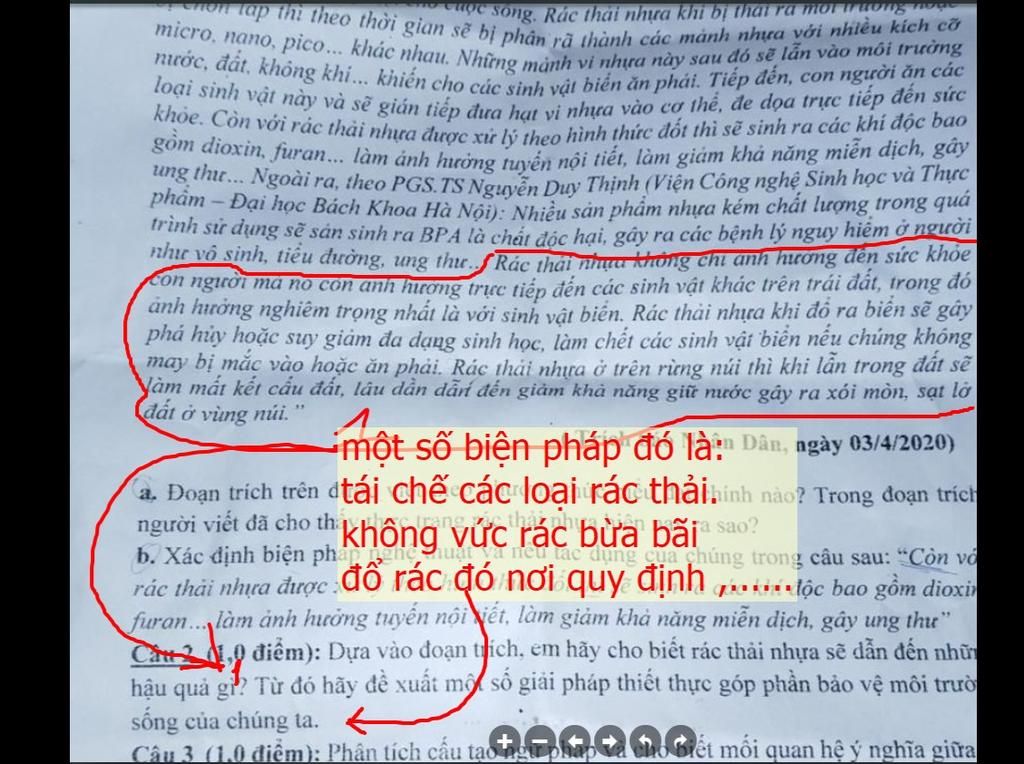 chọn lấp thì theo thời gian sẽ bị phân rã thành các mảnh nhựa với nhiều kích cỡ
cuộc sống. Rác thải nhựa khi bị thải ra môi trường hoặc
micro, nano, pico... khác nhau. Những mảnh vi nhựa này sau đó sẽ lẫn vào môi trường
nước, đất, không khí... khiến cho các sinh vật biển ăn phải. Tiếp đến, con người ăn các
loại sinh vật này và sẽ gián tiếp đưa hạt vi nhựa vào cơ thể, đe dọa trực tiếp đến sức
khỏe. Còn với rác thải nhựa được xử lý theo hình thức đốt thì sẽ sinh ra các khí độc bao
gồm dioxin, furan... làm ảnh hưởng tuyến nội tiết, làm giảm khả năng miễn dịch, gây
ung thư... Ngoài ra, theo PGS.TS Nguyễn Duy Thịnh (Viện Công nghệ Sinh học và Thực
phẩm – Đại học Bách Khoa Hà Nội): Nhiều sản phẩm nhựa kém chất lượng trong quá
trình sử dụng sẽ sản sinh ra BPA là chất độc hại, gây ra các bệnh lý nguy hiểm ở người
như vô sinh, tiểu đường, ung thư... Rác thải nhựa không chỉ ảnh hưởng đến sức khỏe
con người mà nó còn ảnh hưởng trực tiếp đến các sinh vật khác trên trái đất, trong đó
ảnh hưởng nghiêm trọng nhất là với sinh vật biển. Rác thải nhựa khi đổ ra biển sẽ gây
phá hủy hoặc suy giảm đa dạng sinh học, làm chết các sinh vật biển nếu chúng không
may bị mắc vào hoặc ăn phải. Rác thải nhựa ở trên rừng núi thì khi lẫn trong đất sẽ
làm mất kết cấu đất, lâu dần dẫn đến giảm khả năng giữ nước gây ra xói mòn, sạt lở
đất ở vùng núi.”
Nhân Dân, ngày 03/4/2020)
một số biện pháp đó là:
tái chế các loại rác thải.
không vứt rác bừa bãi
đổ rác đó nơi quy định ,......
a. Đoạn trích trên chính nào? Trong đoạn trích
người viết đã cho thấy thực trạng rác thải nhựa hiện nay ra sao?
b. Xác định biện pháp nghệ thuật và nêu tác dụng của chúng trong câu sau: “Còn vớ
rác thải nhựa được các khí độc bao gồm dioxin
furan... làm ảnh hưởng tuyến nội tiết, làm giảm khả năng miễn dịch, gây ung thư”
Câu 2. (1,0 điểm): Dựa vào đoạn trích, em hãy cho biết rác thải nhựa sẽ dẫn đến nhữn
hậu quả gì? Từ đó hãy đề xuất một số giải pháp thiết thực góp phần bảo vệ môi trườ
sống của chúng ta.
Câu 3 (1,0 điểm): Phân tích cấu tạo ngữ pháp và cho biết mối quan hệ ý nghĩa giữa